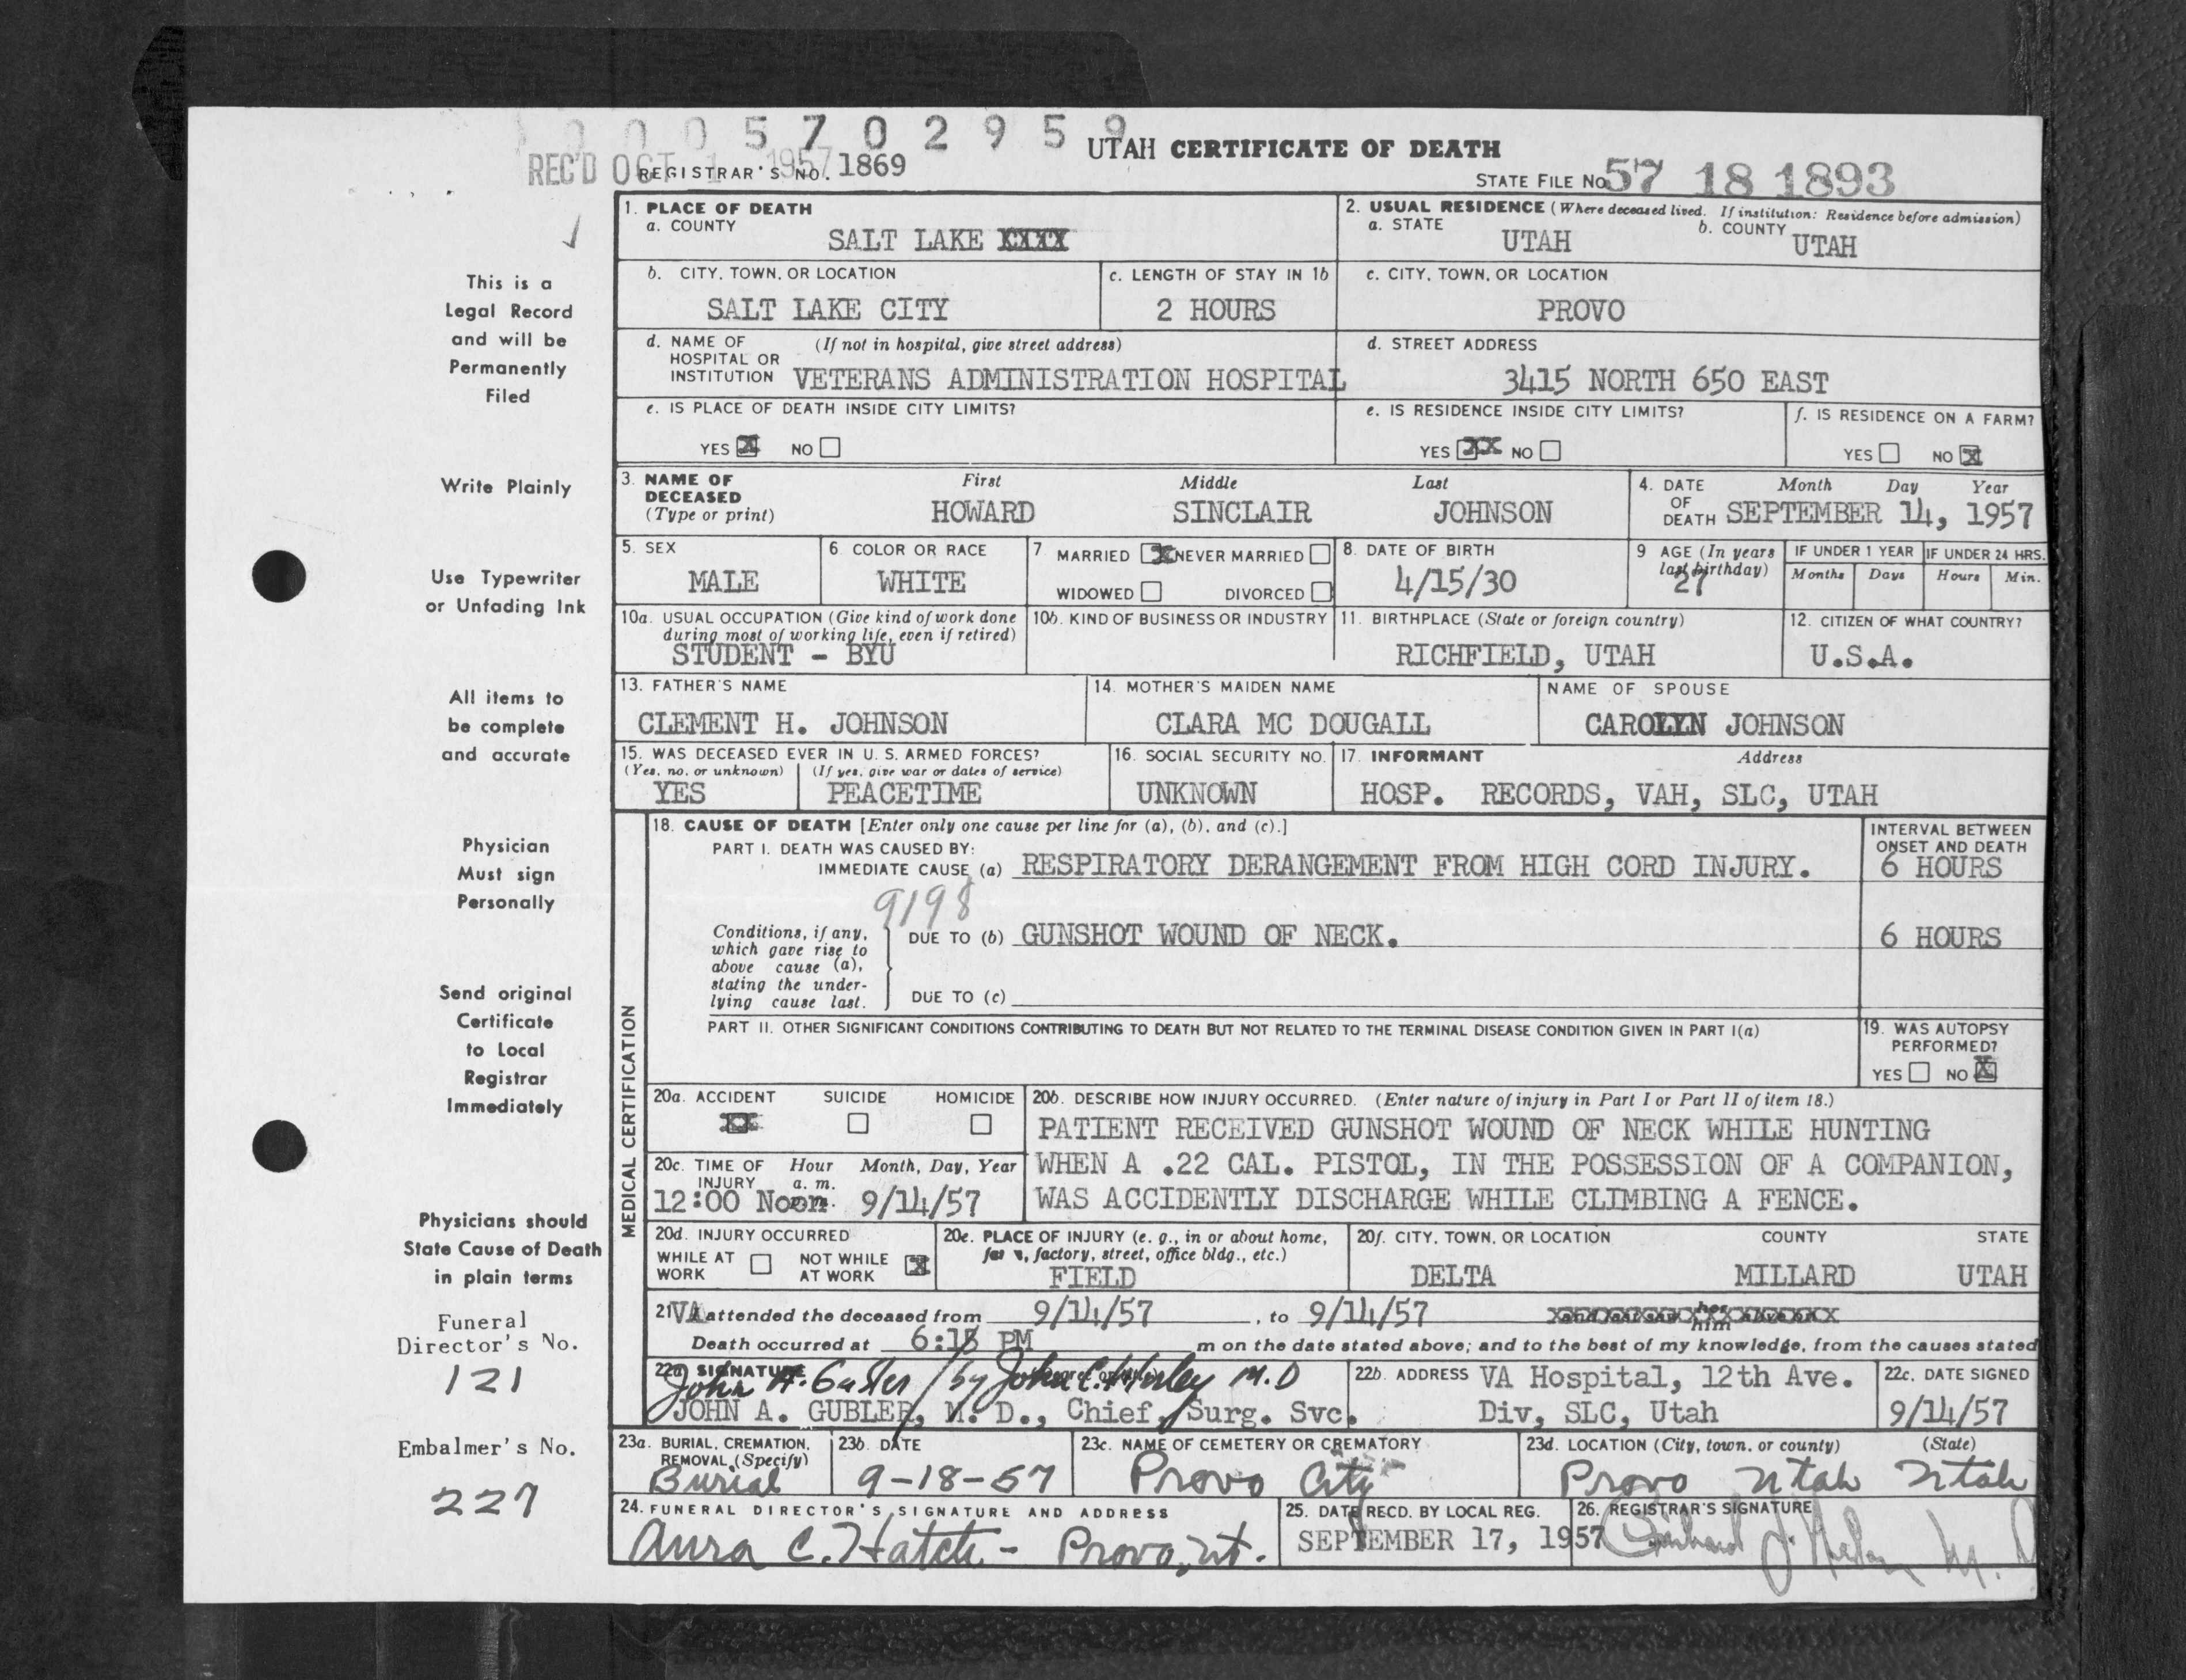 0 0 0 5 7 0 2 9 5 9
UTAH CERTIFICATE OF DEATH
REC'D OCT 1 1957
REGISTRAR'S NO. 1869
STATE FILE NO. 57 18 1893
This is a
Legal Record
and will be
Permanently
Filed
Write Plainly
Use Typewriter
or Unfading Ink
All items to
be complete
and accurate
Physician
Must sign
Personally
Send original
Certificate
to Local
Registrar
Immediately
Physicians should
State Cause of Death
in plain terms
Funeral
Director's No.
121
Embalmer's No.
227
1. PLACE OF DEATH
a. COUNTY
SALT LAKE XXXX
2. USUAL RESIDENCE (Where deceased lived. If institution: Residence before admission)
a. STATE UTAH b. COUNTY UTAH
b. CITY, TOWN, OR LOCATION
SALT LAKE CITY
c. LENGTH OF STAY IN 1b
2 HOURS
c. CITY, TOWN, OR LOCATION
PROVO
d. NAME OF (If not in hospital, give street address)
HOSPITAL OR
INSTITUTION VETERANS ADMINISTRATION HOSPITAL
d. STREET ADDRESS
3415 NORTH 650 EAST
e. IS PLACE OF DEATH INSIDE CITY LIMITS?
YES X NO
e. IS RESIDENCE INSIDE CITY LIMITS?
YES XX NO
f. IS RESIDENCE ON A FARM?
YES NO X
3. NAME OF First Middle Last
DECEASED
(Type or print) HOWARD SINCLAIR JOHNSON
4. DATE Month Day Year
OF
DEATH SEPTEMBER 14, 1957
5. SEX
MALE
6. COLOR OR RACE
WHITE
7. MARRIED X NEVER MARRIED
WIDOWED DIVORCED
8. DATE OF BIRTH
4/15/30
9 AGE (In years
last birthday)
27
IF UNDER 1 YEAR IF UNDER 24 HRS.
Months Days Hours Min.
10a. USUAL OCCUPATION (Give kind of work done
during most of working life, even if retired)
STUDENT - BYU
10b. KIND OF BUSINESS OR INDUSTRY
11. BIRTHPLACE (State or foreign country)
RICHFIELD, UTAH
12. CITIZEN OF WHAT COUNTRY?
U.S.A.
13. FATHER'S NAME
CLEMENT H. JOHNSON
14. MOTHER'S MAIDEN NAME
CLARA MC DOUGALL
NAME OF SPOUSE
CAROLYN JOHNSON
15. WAS DECEASED EVER IN U. S. ARMED FORCES?
(Yes, no, or unknown) (If yes, give war or dates of service)
YES PEACETIME
16. SOCIAL SECURITY NO.
UNKNOWN
17. INFORMANT Address
HOSP. RECORDS, VAH, SLC, UTAH
MEDICAL CERTIFICATION
18. CAUSE OF DEATH [Enter only one cause per line for (a), (b), and (c).]
PART I. DEATH WAS CAUSED BY:
IMMEDIATE CAUSE (a) RESPIRATORY DERANGEMENT FROM HIGH CORD INJURY.
INTERVAL BETWEEN
ONSET AND DEATH
6 HOURS
9198
Conditions, if any,
which gave rise to
above cause (a),
stating the under-
lying cause last.
DUE TO (b) GUNSHOT WOUND OF NECK.
6 HOURS
DUE TO (c)
PART II. OTHER SIGNIFICANT CONDITIONS CONTRIBUTING TO DEATH BUT NOT RELATED TO THE TERMINAL DISEASE CONDITION GIVEN IN PART I(a)
19. WAS AUTOPSY
PERFORMED?
YES NO X
20a. ACCIDENT SUICIDE HOMICIDE
20b. DESCRIBE HOW INJURY OCCURRED. (Enter nature of injury in Part I or Part II of item 18.)
PATIENT RECEIVED GUNSHOT WOUND OF NECK WHILE HUNTING
WHEN A .22 CAL. PISTOL, IN THE POSSESSION OF A COMPANION,
WAS ACCIDENTLY DISCHARGE WHILE CLIMBING A FENCE.
20c. TIME OF Hour Month, Day, Year
INJURY a. m.
12:00 Noon p.m. 9/14/57
20d. INJURY OCCURRED
WHILE AT WORK NOT WHILE AT WORK X
20e. PLACE OF INJURY (e. g., in or about home,
farm, factory, street, office bldg., etc.)
FIELD
20f. CITY, TOWN, OR LOCATION COUNTY STATE
DELTA MILLARD UTAH
21 VA attended the deceased from 9/14/57, to 9/14/57 and last saw her him alive on
Death occurred at 6:15 PM m on the date stated above; and to the best of my knowledge, from the causes stated
22a SIGNATURE (Degree or title)
John A. Gubler / by John C. M.D
JOHN A. GUBLER, M. D., Chief, Surg. Svc.
22b. ADDRESS VA Hospital, 12th Ave.
Div, SLC, Utah
22c. DATE SIGNED
9/14/57
23a. BURIAL, CREMATION,
REMOVAL (Specify)
Burial
23b. DATE
9-18-57
23c. NAME OF CEMETERY OR CREMATORY
Provo City
23d. LOCATION (City, town, or county) (State)
Provo Utah Utah
24. FUNERAL DIRECTOR'S SIGNATURE AND ADDRESS
Aura C. Hatch - Provo, Ut.
25. DATE RECD. BY LOCAL REG.
SEPTEMBER 17, 1957
26. REGISTRAR'S SIGNATURE
M. D